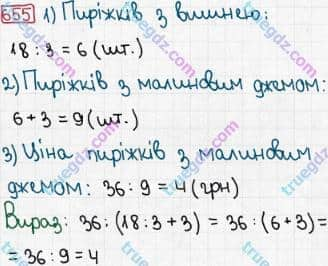 655 1) Пиріжків з вишнею:
18 : 3 = 6 (шт.)
2) Пиріжків з малиновим джемом:
6 + 3 = 9 (шт.)
3) Ціна пиріжків з малиновим
джемом: 36 : 9 = 4 (грн)
Вираз: 36 : (18 : 3 + 3) = 36 : (6 + 3) =
= 36 : 9 = 4
truegdz.com